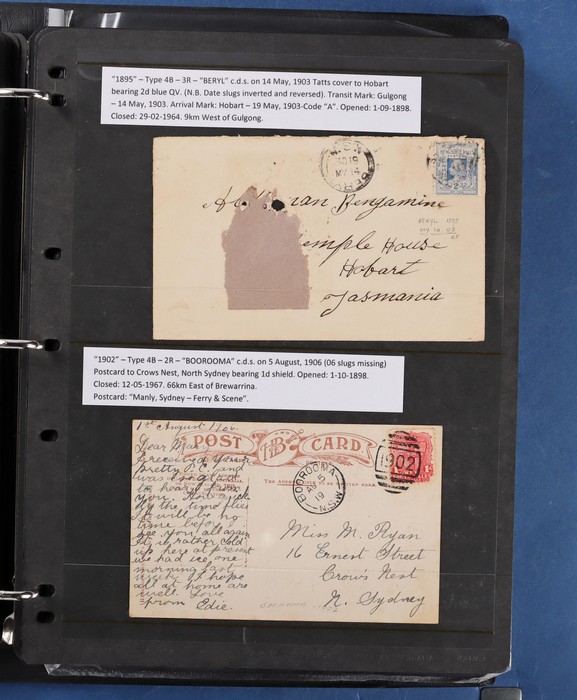 "1895" – Type 4B – 3R – "BERYL" c.d.s. on 14 May, 1903 Tatts cover to Hobart
bearing 2d blue QV. (N.B. Date slugs inverted and reversed). Transit Mark: Gulgong
– 14 May, 1903. Arrival Mark: Hobart – 19 May, 1903-Code "A". Opened: 1-09-1898.
Closed: 29-02-1964. 9km West of Gulgong.
N.S.W
MY 14
BERYL
Benjamine
Temple House
Hobart
Tasmania
BERYL 1895
"1902" – Type 4B – 2R – "BOOROOMA" c.d.s. on 5 August, 1906 (06 slugs missing)
Postcard to Crows Nest, North Sydney bearing 1d shield. Opened: 1-10-1898.
Closed: 12-05-1967. 66km East of Brewarrina.
Postcard: "Manly, Sydney – Ferry & Scene".
1st August 1906.
POST CARD
1902
BOOROOMA
AU 5
19
N.S.W
Dear Mary
Received your
pretty P.C. and
was so glad
to hear from
you. How quick
by the time flies
it will be no
time before
see you all again
It is rather cold
up here at present
we had ice one
morning last
week. I hope
all at home are
well. Love
from Edie.
Miss M. Ryan
16 Ernest Street
Crow's Nest
N. Sydney